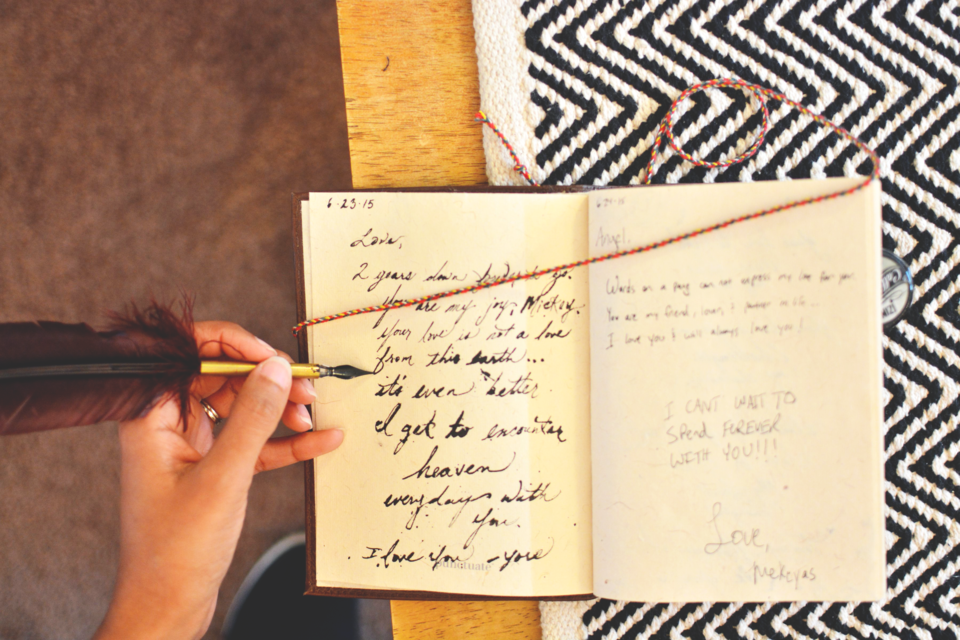 6-23-15
Love,
2 years down to go.
You are my joy, Mickey.
Your love is not a love
from this earth...
it's even better.
I get to encounter
heaven
everydays with
You.
I love You - yore
punctuate
Angel.
Words on a page can not express my love for you.
You are my friend, lover, & partner in life...
I love you & will always love you!
I CANT WAIT TO
Spend FOREVER
WITH YOU!!!
Love,
Mekeyas